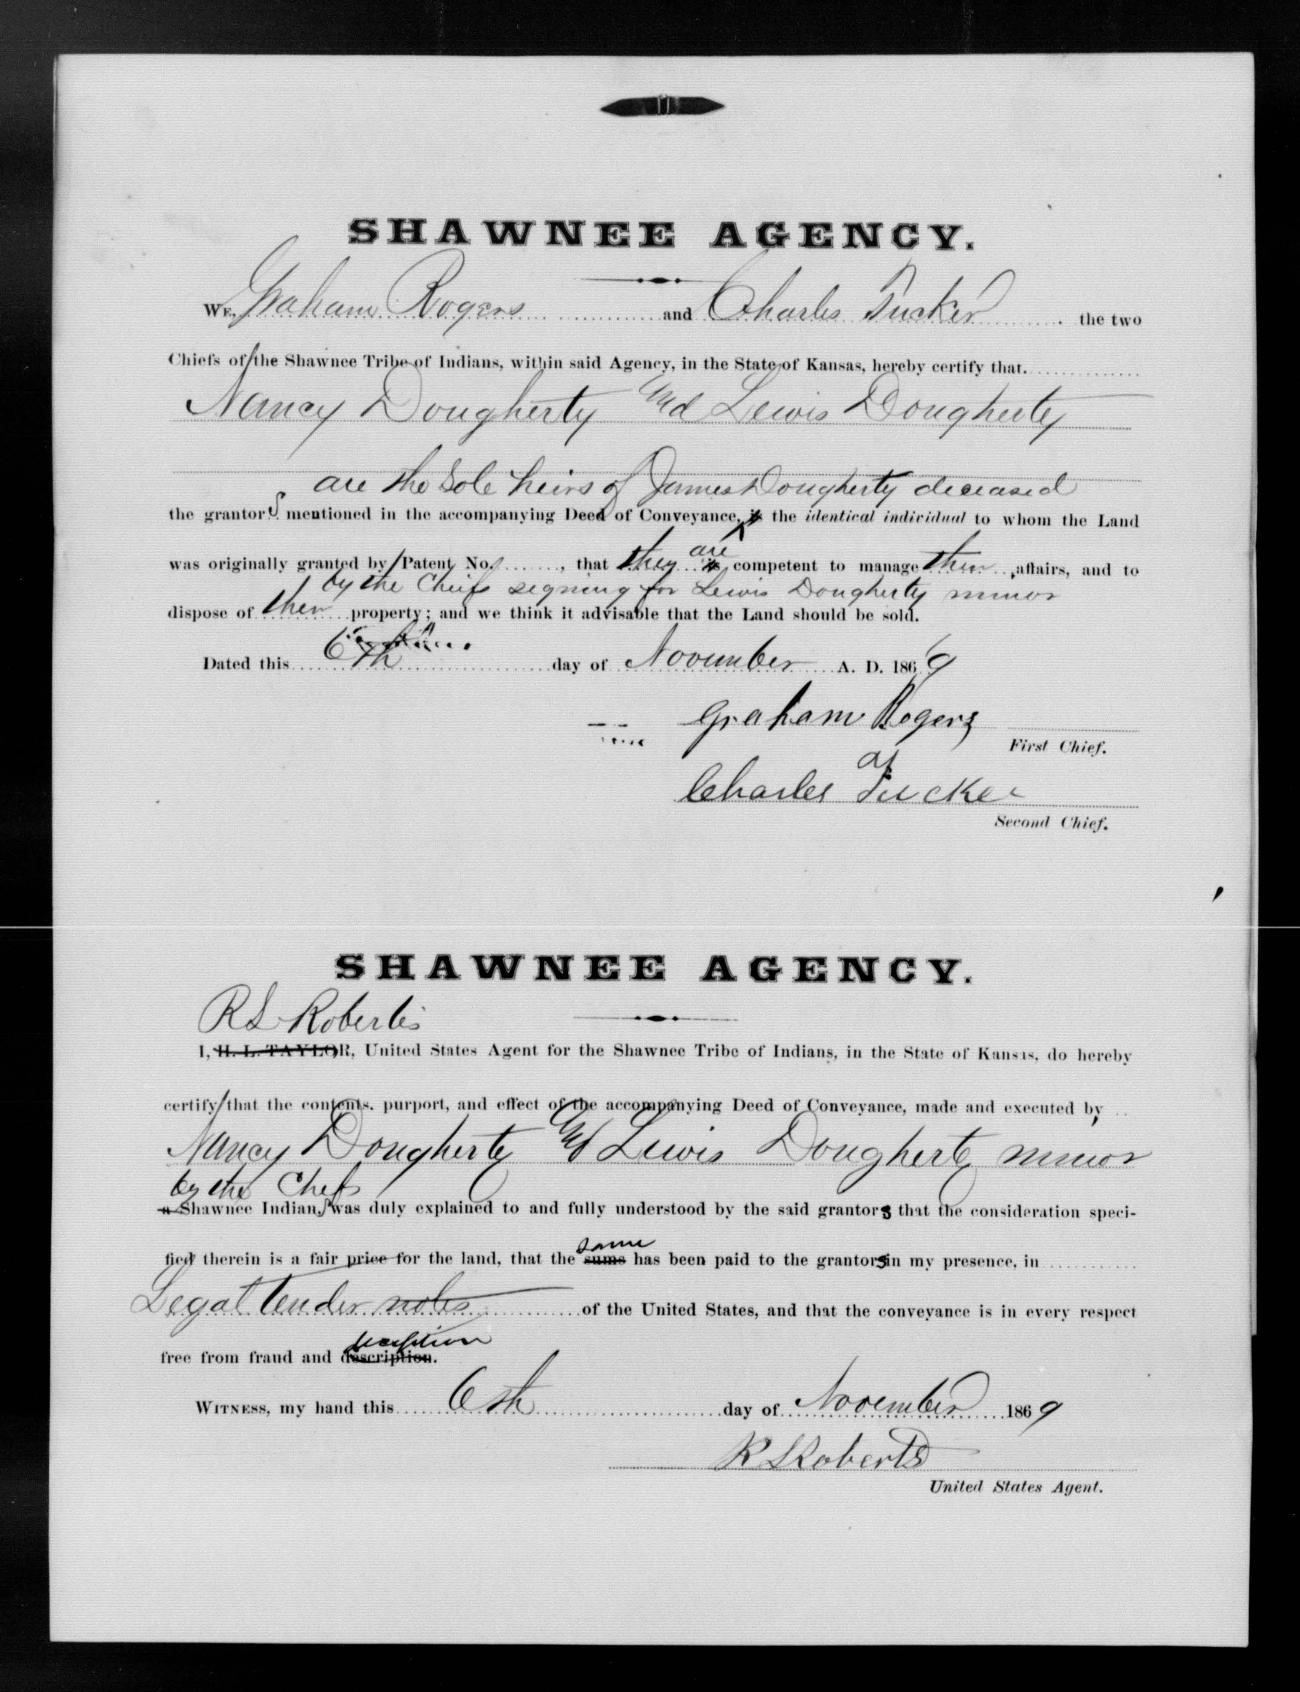 SHAWNEE AGENCY.
WE, Graham Rogers and Charles Tucker the two
Chiefs of the Shawnee Tribe of Indians, within said Agency, in the State of Kansas, hereby certify that
Nancy Dougherty and Lewis Dougherty
are the Sole heirs of James Dougherty deceased
the grantors mentioned in the accompanying Deed of Conveyance, is the identical individual to whom the Land
are
was originally granted by Patent No. , that they is competent to manage their affairs, and to
by the Chiefs signing for Lewis Dougherty minor
dispose of their property; and we think it advisable that the Land should be sold.
Dated this 6th day of November A. D. 1869
Graham Rogers
First Chief.
Charles Tucker
Second Chief.
SHAWNEE AGENCY.
R S Roberts
I, H. L. TAYLOR, United States Agent for the Shawnee Tribe of Indians, in the State of Kansas, do hereby
certify that the contents, purport, and effect of the accompanying Deed of Conveyance, made and executed by
Nancy Dougherty and Lewis Dougherty minor
by the Chefs
a Shawnee Indian, was duly explained to and fully understood by the said grantors that the consideration speci-
same
fied therein is a fair price for the land, that the sums has been paid to the grantors in my presence, in
Legal tender notes of the United States, and that the conveyance is in every respect
deception
free from fraud and description.
WITNESS, my hand this 6th day of November 1869
R S Roberts
United States Agent.